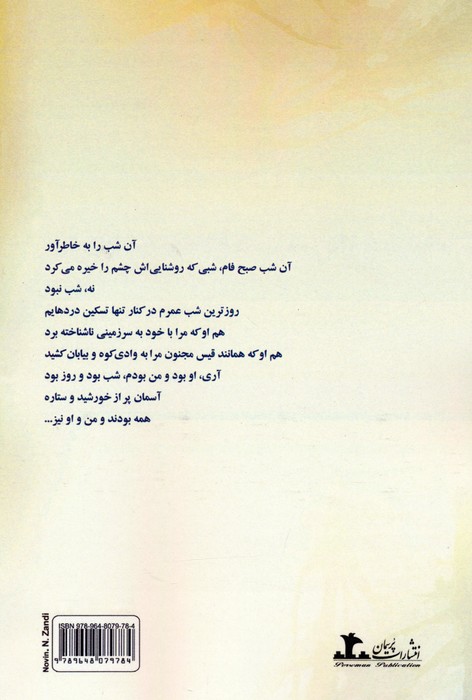 آن شب را به خاطرآور
آن شب صبح فام، شبی‌که روشنایی‌اش چشم را خیره می‌کرد
نه، شب نبود
روزترین شب عمرم در کنار تنها تسکین دردهایم
هم اوکه مرا با خود به سرزمینی ناشناخته برد
هم اوکه همانند قیس مجنون مرا به وادی‌کوه و بیابان‌کشید
آری، او بود و من بودم، شب بود و روز بود
آسمان پر از خورشید و ستاره
همه بودند و من و او نیز...
ISBN 978-964-8079-78-4
9789648079784
Novin. N. Zandi
انتشارات پُریمان
Persuman Publication